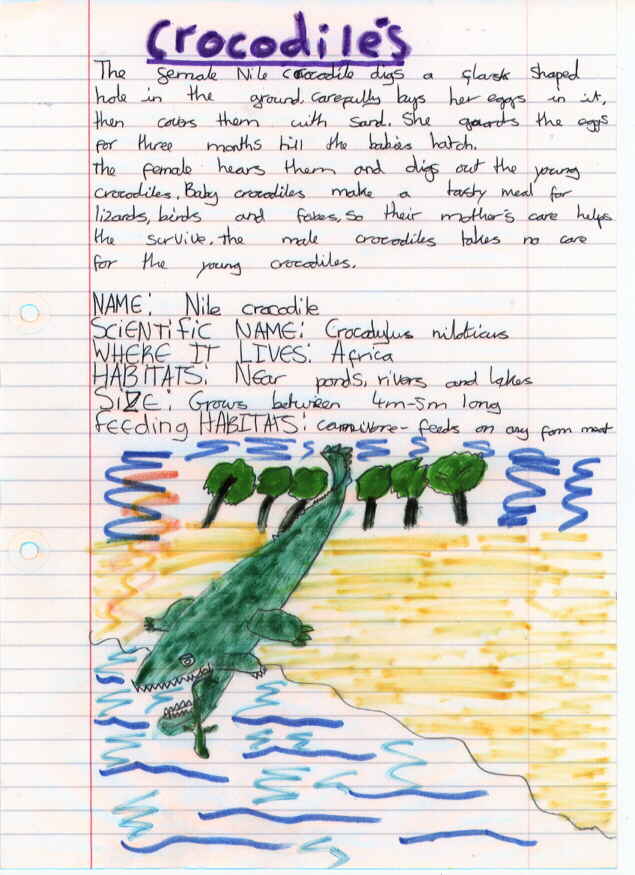 Crocodile's
The female Nile crocodile digs a flask shaped
hole in the ground. Carefully lays her eggs in it,
then covers them with sand. She guards the eggs
for three months till the babies hatch.
The female hears them and digs out the young
crocodiles. Baby crocodiles make a tasty meal for
lizards, birds and foxes, so their mother's care helps
the survive. The male crocodiles takes no care
for the young crocodiles.
NAME: Nile crocodile
SCiENTific NAME: Crocodylus niloticus
WHERE IT LIVES: Africa
HABITATS: Near ponds, rivers and lakes
SiZE: Grows between 4m-5m long
feeding HABITATS: carnivore - feeds on any form meat